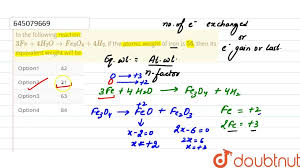 645079669
In the following reaction
3Fe + 4H₂O → Fe₃O₄ + 4H₂ if the atomic weight of iron is 56, then its
equivalent weight will be
Option1 42
Option2 21
Option3 63
Option4 84
no. of e⁻ exchanged
or
e⁻ gain or lost
Eq. wt. = At. wt.
n-factor
0 → +3
3Fe + 4H₂O → Fe₃O₄ + 4H₂
Fe₃O₄ → FeO + Fe₂O₃
+2
x-2=0
x=+2
2x-6=0
2x=6
x=+3
Fe = +2
2Fe = +3
doubtnut